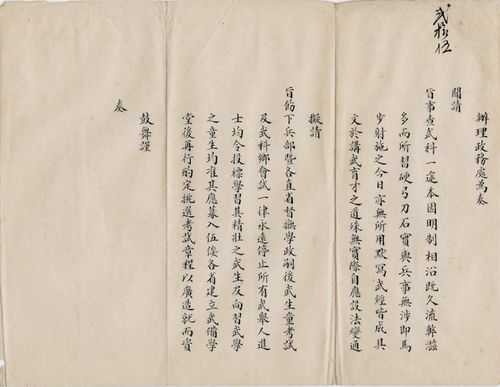 弍拾伍
辦理政務處為奏
聞請
旨事查武科一途本因明制相沿既久流弊滋
多而所習硬弓刀石實與兵事無涉即馬
步射施之今日亦無所用默寫武經皆成具
文於講武育才之道殊無實際自應設法變通
擬請
旨飭下兵部暨各直省督撫學政嗣後武生童考試
及武科鄉會試一律永遠停止所有武舉人進
士均令投標學習其精壯之武生及向習武學
之童生均准其應募入伍俟各省建立武備學
堂後再行酌定挑選考試章程以廣造就而資
鼓舞謹
奏